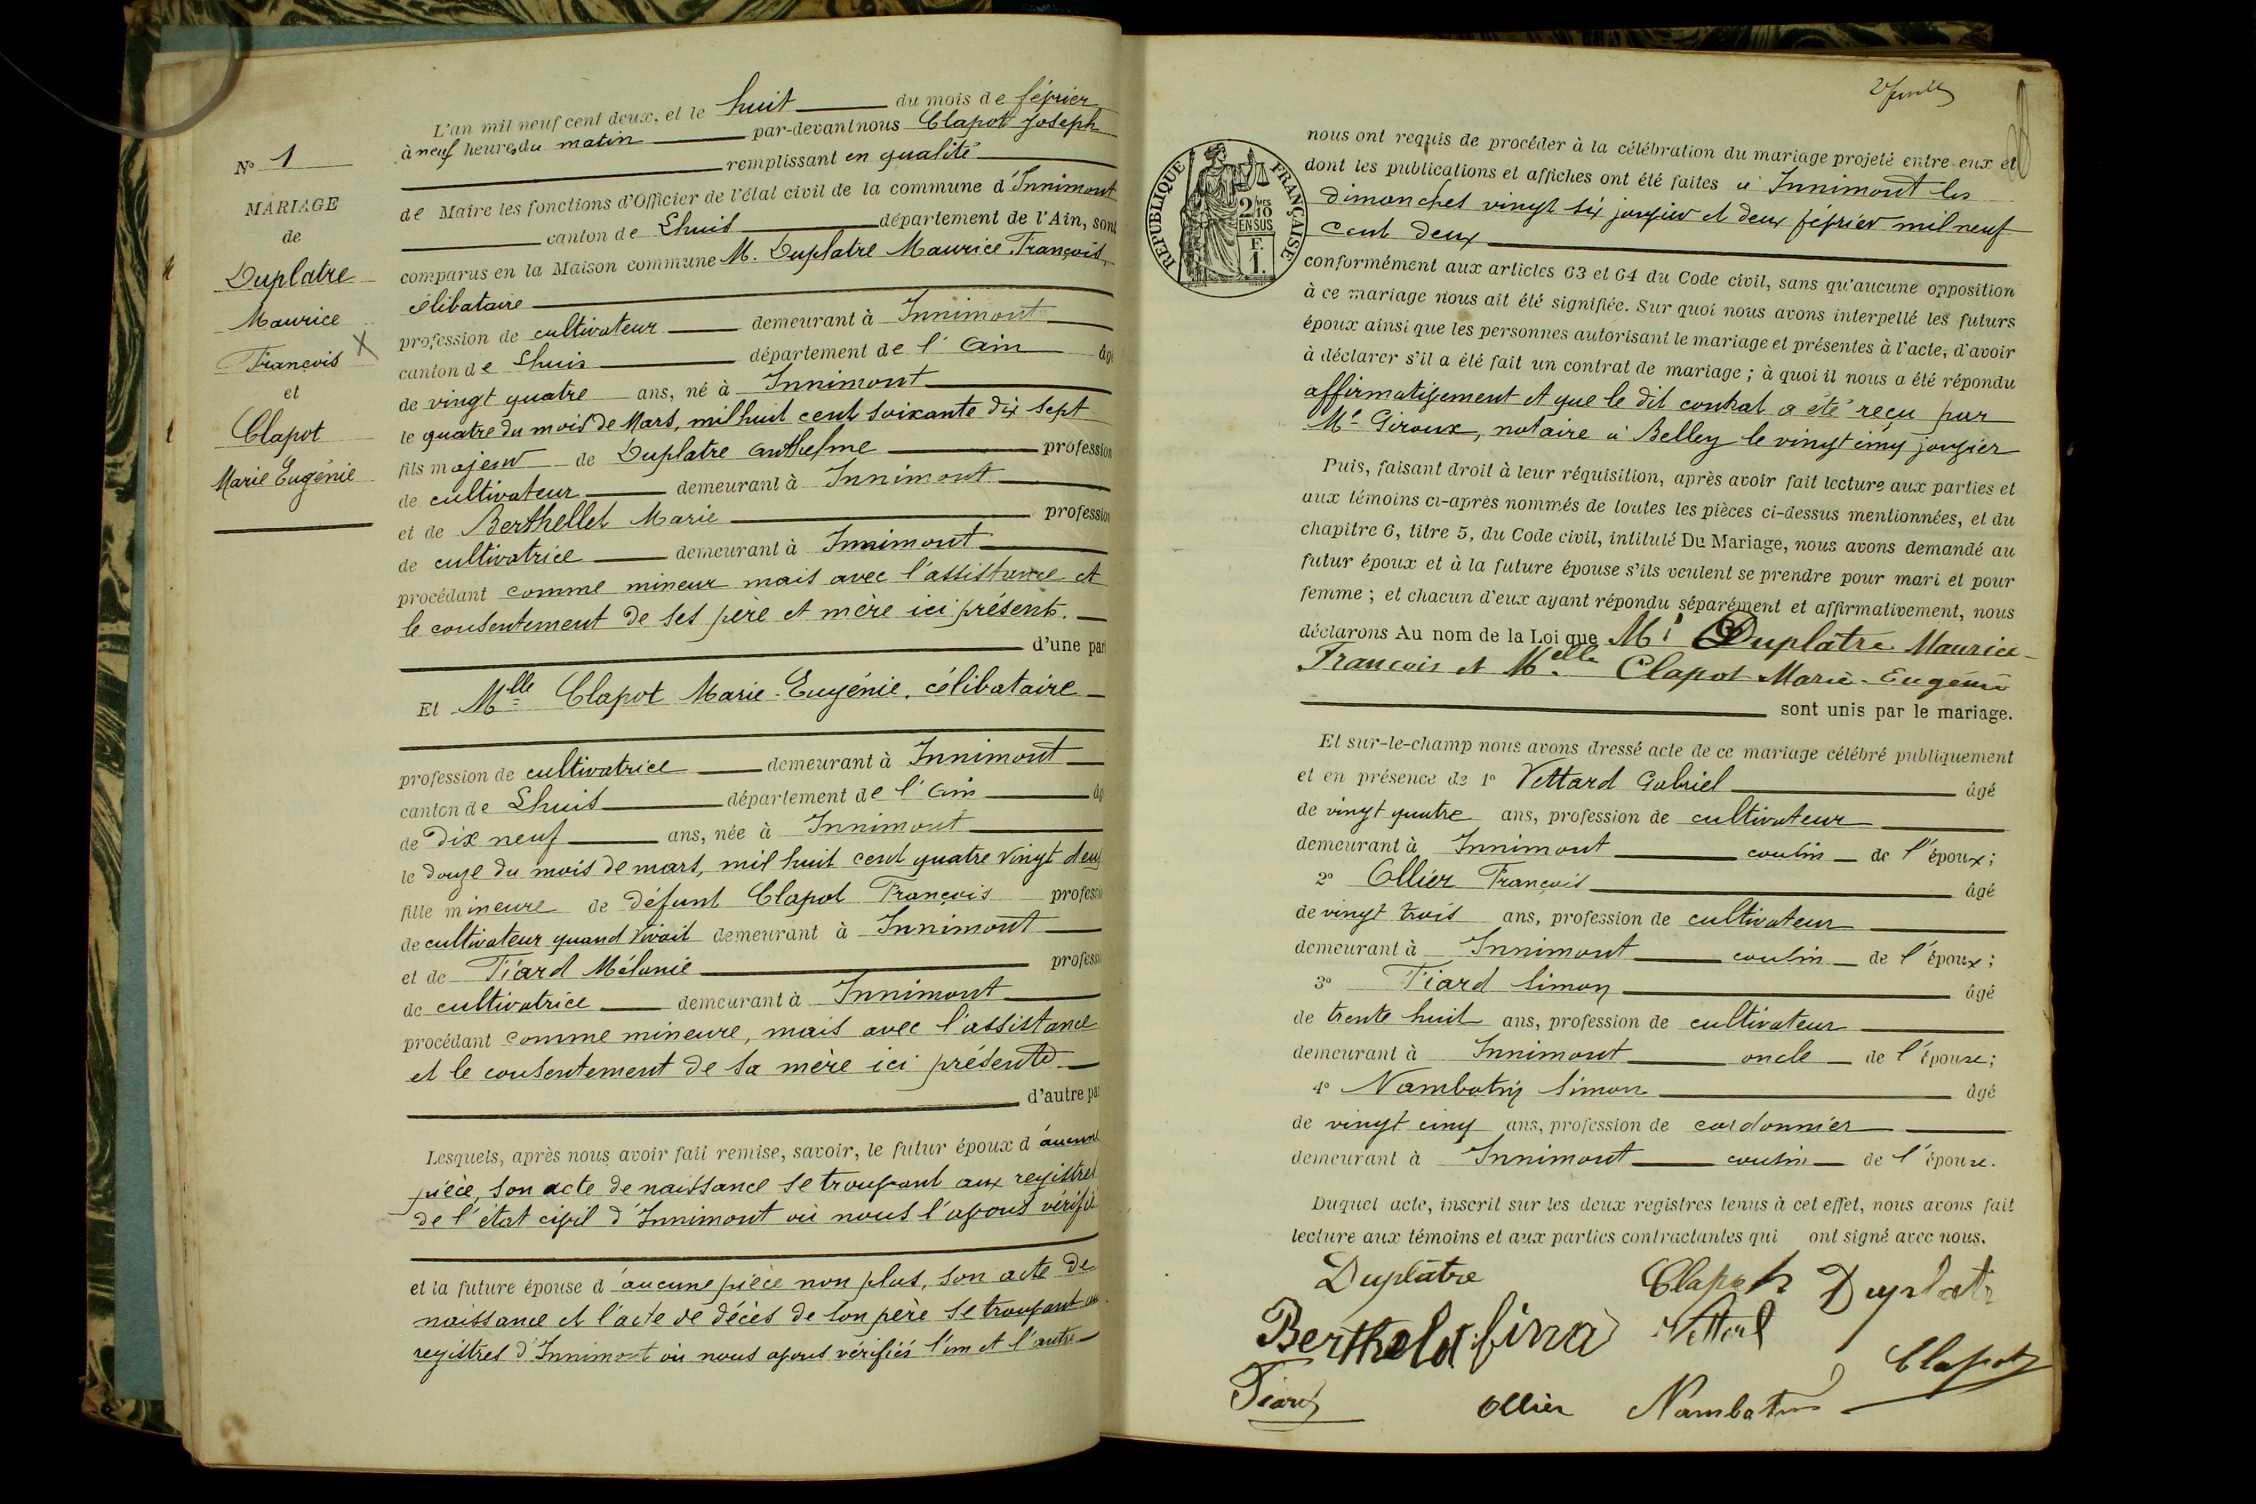 N° 1
MARIAGE
de
Duplatre
Maurice
François
et
Clapot
Marie Eugénie
L'an mil neuf cent deux, et le huit du mois de février
à neuf heures du matin par-devant nous Clapot Joseph
remplissant en qualité
de Maire les fonctions d'Officier de l'état civil de la commune d'Innimont
canton de Lhuis département de l'Ain, sont
comparus en la Maison commune M. Duplatre Maurice François,
célibataire
profession de cultivateur demeurant à Innimont
canton de Lhuis département de l'Ain âgé
de vingt quatre ans, né à Innimont
le quatre du mois de Mars, mil huit cent soixante dix sept
fils majeur de Duplatre Anthelme profession
de cultivateur demeurant à Innimont
et de Berthellet Marie profession
de cultivatrice demeurant à Innimont
procédant comme mineur mais avec l'assistance et
le consentement de ses père et mère ici présents.
d'une par
Et Mlle Clapot Marie-Eugénie, célibataire
profession de cultivatrice demeurant à Innimont
canton de Lhuis département de l'Ain âg
de dix neuf ans, née à Innimont
le douze du mois de mars, mil huit cent quatre vingt deux
fille mineure de défunt Clapot François profession
de cultivateur quand vivait demeurant à Innimont
et de Tiard Mélanie profession
de cultivatrice demeurant à Innimont
procédant comme mineure, mais avec l'assistance
et le consentement de sa mère ici présente
d'autre par
Lesquels, après nous avoir fait remise, savoir, le futur époux d'aucune
pièce, son acte de naissance se trouvant aux registres
de l'état civil d'Innimont où nous l'avons vérifié
et la future épouse d'aucune pièce non plus, son acte de
naissance et l'acte de décès de son père se trouvant au
registres d'Innimont où nous avons vérifiés l'un et l'autre
2 feuille
RÉPUBLIQUE FRANÇAISE
2/10
EN SUS
F.
1.
nous ont requis de procéder à la célébration du mariage projeté entre eux et
dont les publications et affiches ont été faites à Innimont les
dimanches vingt six janvier et deux février mil neuf
cent deux
conformément aux articles 63 et 64 du Code civil, sans qu'aucune opposition
à ce mariage nous ait été signifiée. Sur quoi nous avons interpellé les futurs
époux ainsi que les personnes autorisant le mariage et présentes à l'acte, d'avoir
à déclarer s'il a été fait un contrat de mariage ; à quoi il nous a été répondu
affirmativement et que le dit contrat a été reçu par
Me Giroux, notaire à Belley le vingt cinq janvier
Puis, faisant droit à leur réquisition, après avoir fait lecture aux parties et
aux témoins ci-après nommés de toutes les pièces ci-dessus mentionnées, et du
chapitre 6, titre 5, du Code civil, intitulé Du Mariage, nous avons demandé au
futur époux et à la future épouse s'ils veulent se prendre pour mari et pour
femme ; et chacun d'eux ayant répondu séparément et affirmativement, nous
déclarons Au nom de la Loi que Mr Duplâtre Maurice-
François et Melle Clapot Marie-Eugénie
sont unis par le mariage.
Et sur-le-champ nous avons dressé acte de ce mariage célébré publiquement
et en présence de 1° Vettard Gabriel âgé
de vingt quatre ans, profession de cultivateur
demeurant à Innimont cousin de l'époux ;
2° Ollier François âgé
de vingt trois ans, profession de cultivateur
demeurant à Innimont cousin de l'époux ;
3° Tiard Simon âgé
de trente huit ans, profession de cultivateur
demeurant à Innimont oncle de l'épouse ;
4° Nambotin Simon âgé
de vingt cinq ans, profession de cordonnier
demeurant à Innimont cousin de l'épouse.
Duquel acte, inscrit sur les deux registres tenus à cet effet, nous avons fait
lecture aux témoins et aux parties contractantes qui ont signé avec nous.
Duplâtre Clapot Duplatre
Berthelet fina Vettard
Clapot
Tiard Ollier Nambotin